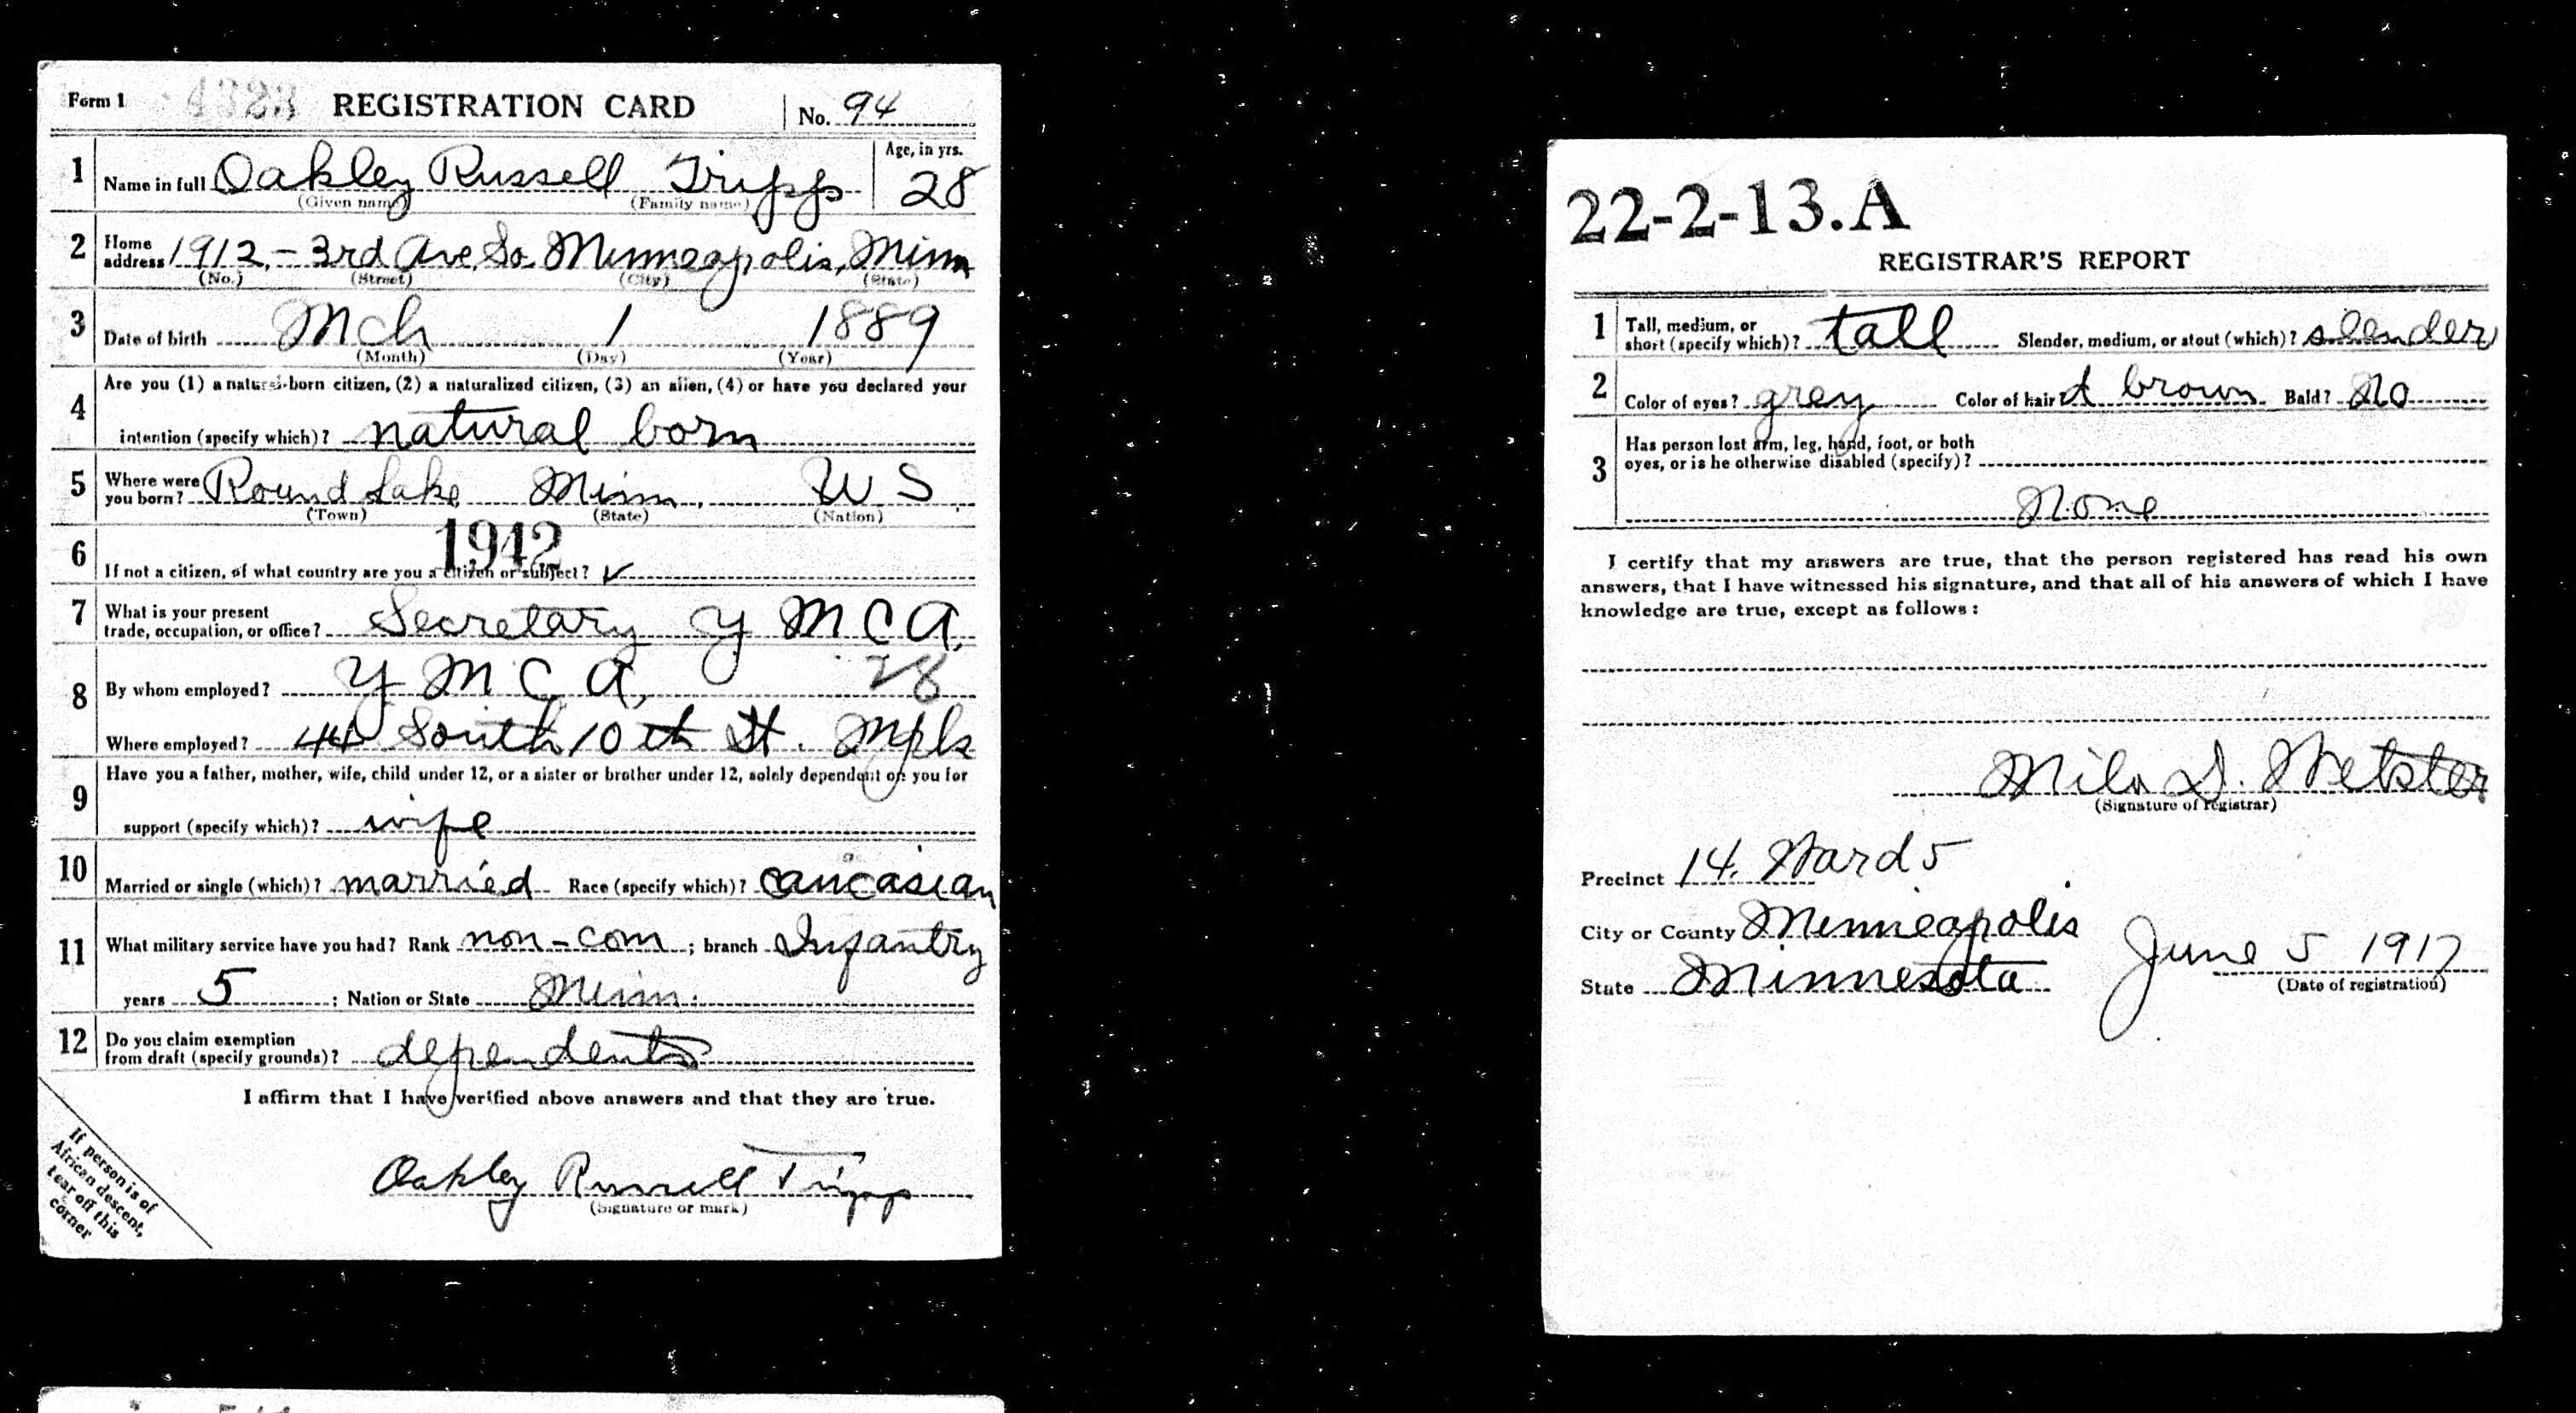 Form 1 4323 REGISTRATION CARD No. 94
1 Name in full Oakley Russell Tripp Age, in yrs. 28
(Given name) (Family name)
2 Home address 1912 - 3rd Ave. So. Minneapolis, Minn
(No.) (Street) (City) (State)
3 Date of birth Mch 1 1889
(Month) (Day) (Year)
4 Are you (1) a natural-born citizen, (2) a naturalized citizen, (3) an alien, (4) or have you declared your
intention (specify which)? natural born
5 Where were you born? Round Lake Minn, U S
(Town) (State) (Nation)
1942
6 If not a citizen, of what country are you a citizen or subject? ✓
7 What is your present trade, occupation, or office? Secretary Y M C A,
8 By whom employed? Y M C A, 28
Where employed? 44 South 10 th St. Mpls
9 Have you a father, mother, wife, child under 12, or a sister or brother under 12, solely dependent on you for
support (specify which)? wife
10 Married or single (which)? married Race (specify which)? caucasian
11 What military service have you had? Rank non-com ; branch Infantry
years 5 ; Nation or State Minn.
12 Do you claim exemption from draft (specify grounds)? dependents
I affirm that I have verified above answers and that they are true.
Oakley Russell Tripp
(Signature or mark)
If person is of
African descent,
tear off this
corner
22-2-13.A
REGISTRAR'S REPORT
1 Tall, medium, or short (specify which)? tall Slender, medium, or stout (which)? slender
2 Color of eyes? grey Color of hair d brown Bald? No
3 Has person lost arm, leg, hand, foot, or both
eyes, or is he otherwise disabled (specify)?
None
I certify that my answers are true, that the person registered has read his own
answers, that I have witnessed his signature, and that all of his answers of which I have
knowledge are true, except as follows:
Milo D. Webster
(Signature of registrar)
Precinct 14. Ward 5
City or County Minneapolis
State Minnesota June 5 1917
(Date of registration)